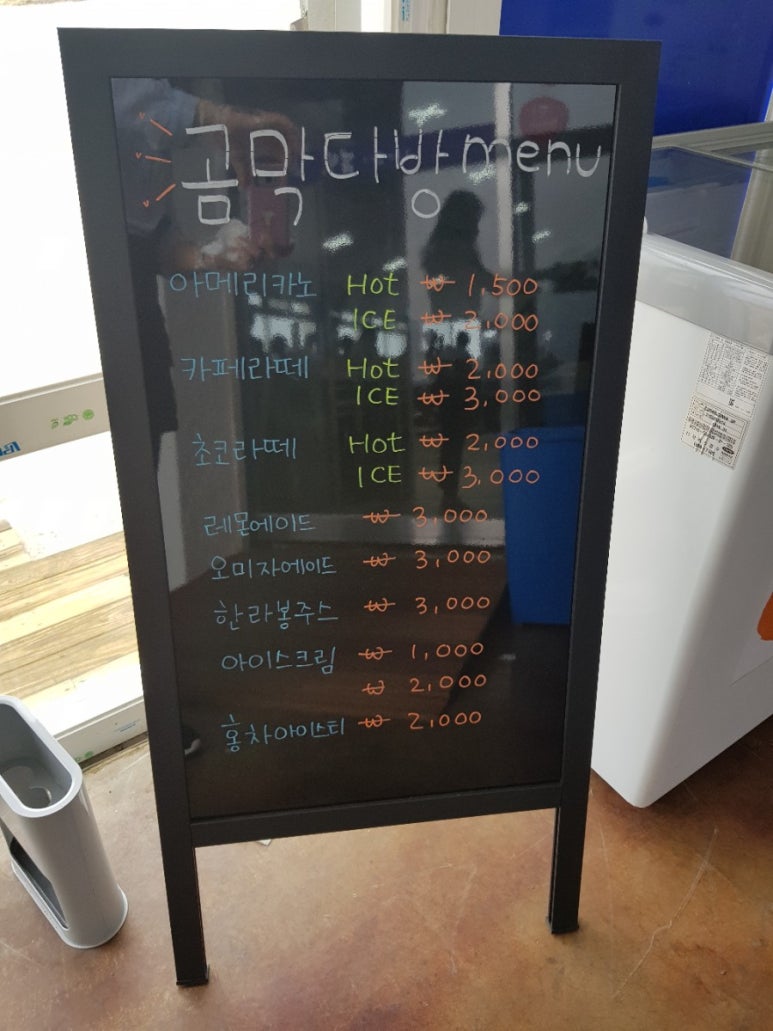 곰막다방 menu
아메리카노 Hot ₩ 1,500
ICE ₩ 2,000
카페라떼 Hot ₩ 2,000
ICE ₩ 3,000
초코라떼 Hot ₩ 2,000
ICE ₩ 3,000
레몬에이드 ₩ 3,000
오미자에이드 ₩ 3,000
한라봉주스 ₩ 3,000
아이스크림 ₩ 1,000
₩ 2,000
홍차아이스티 ₩ 2,000